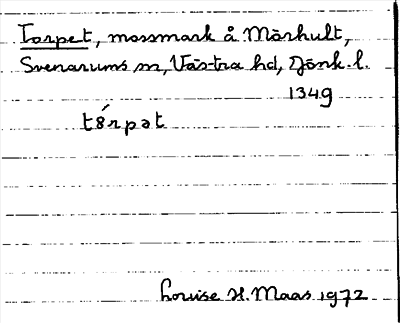 Torpet, mossmark å Mörhult,
Svenarums sn, Västra hd, Jönk. l.
1349
tórpət
Louise H. Maas 1972